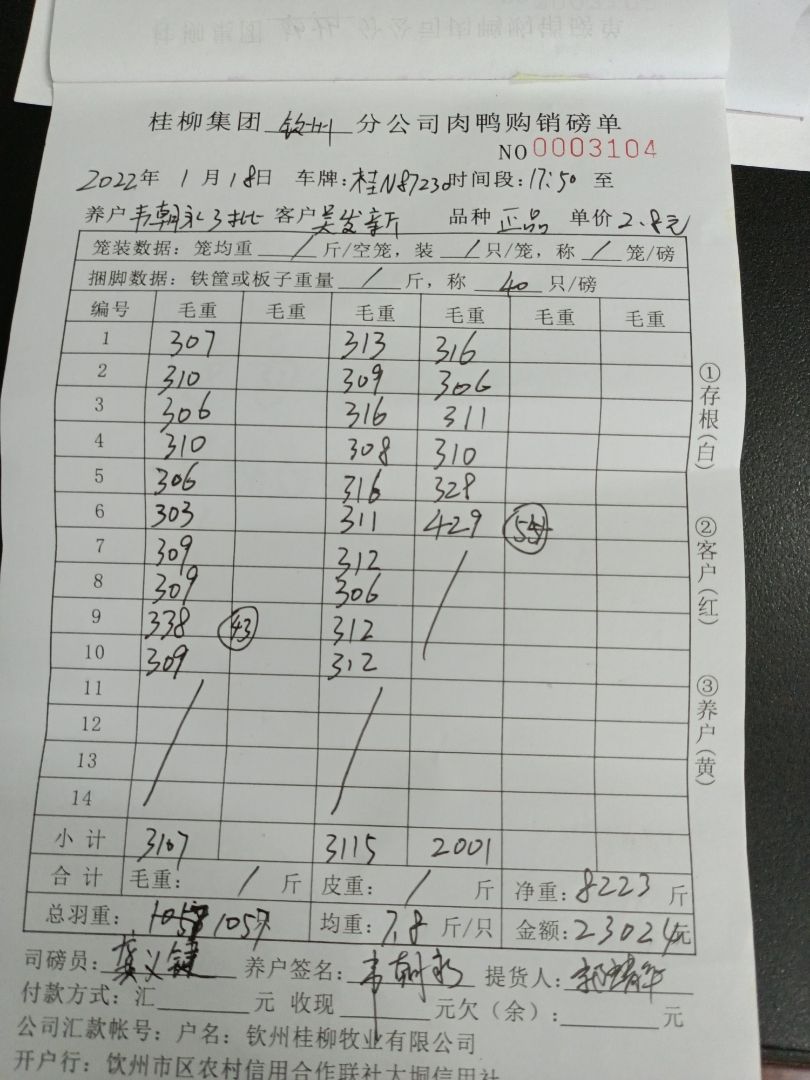 桂柳集团 钦州 分公司肉鸭购销磅单
NO 0003104
2022年 1月18日 车牌:桂N87230时间段:17:50 至
养户韦朝永3批 客户吴发新 品种 正品 单价2.8元
笼装数据:笼均重 / 斤/空笼,装 / 只/笼,称 / 笼/磅
捆脚数据:铁筐或板子重量 / 斤,称 40 只/磅
编号 毛重 毛重 毛重 毛重 毛重 毛重
1 307 313 316
2 310 309 306
3 306 316 311
4 310 308 310
5 306 316 328
6 303 311 429
7 309 312
8 309 306
9 338 43 312
10 309 312
11
12
13
14
小计 3107 3115 2001
合计 毛重: / 斤 皮重: / 斤 净重:8223 斤
总羽重: 1057 均重:7.8 斤/只 金额:23024元
司磅员: 养户签名:韦朝永 提货人:
付款方式:汇 元 收现 元欠(余): 元
公司汇款帐号:户名:钦州桂柳牧业有限公司
开户行:钦州市区农村信用合作联社大垌信用社
①存根(白)
②客户(红)
③养户(黄)